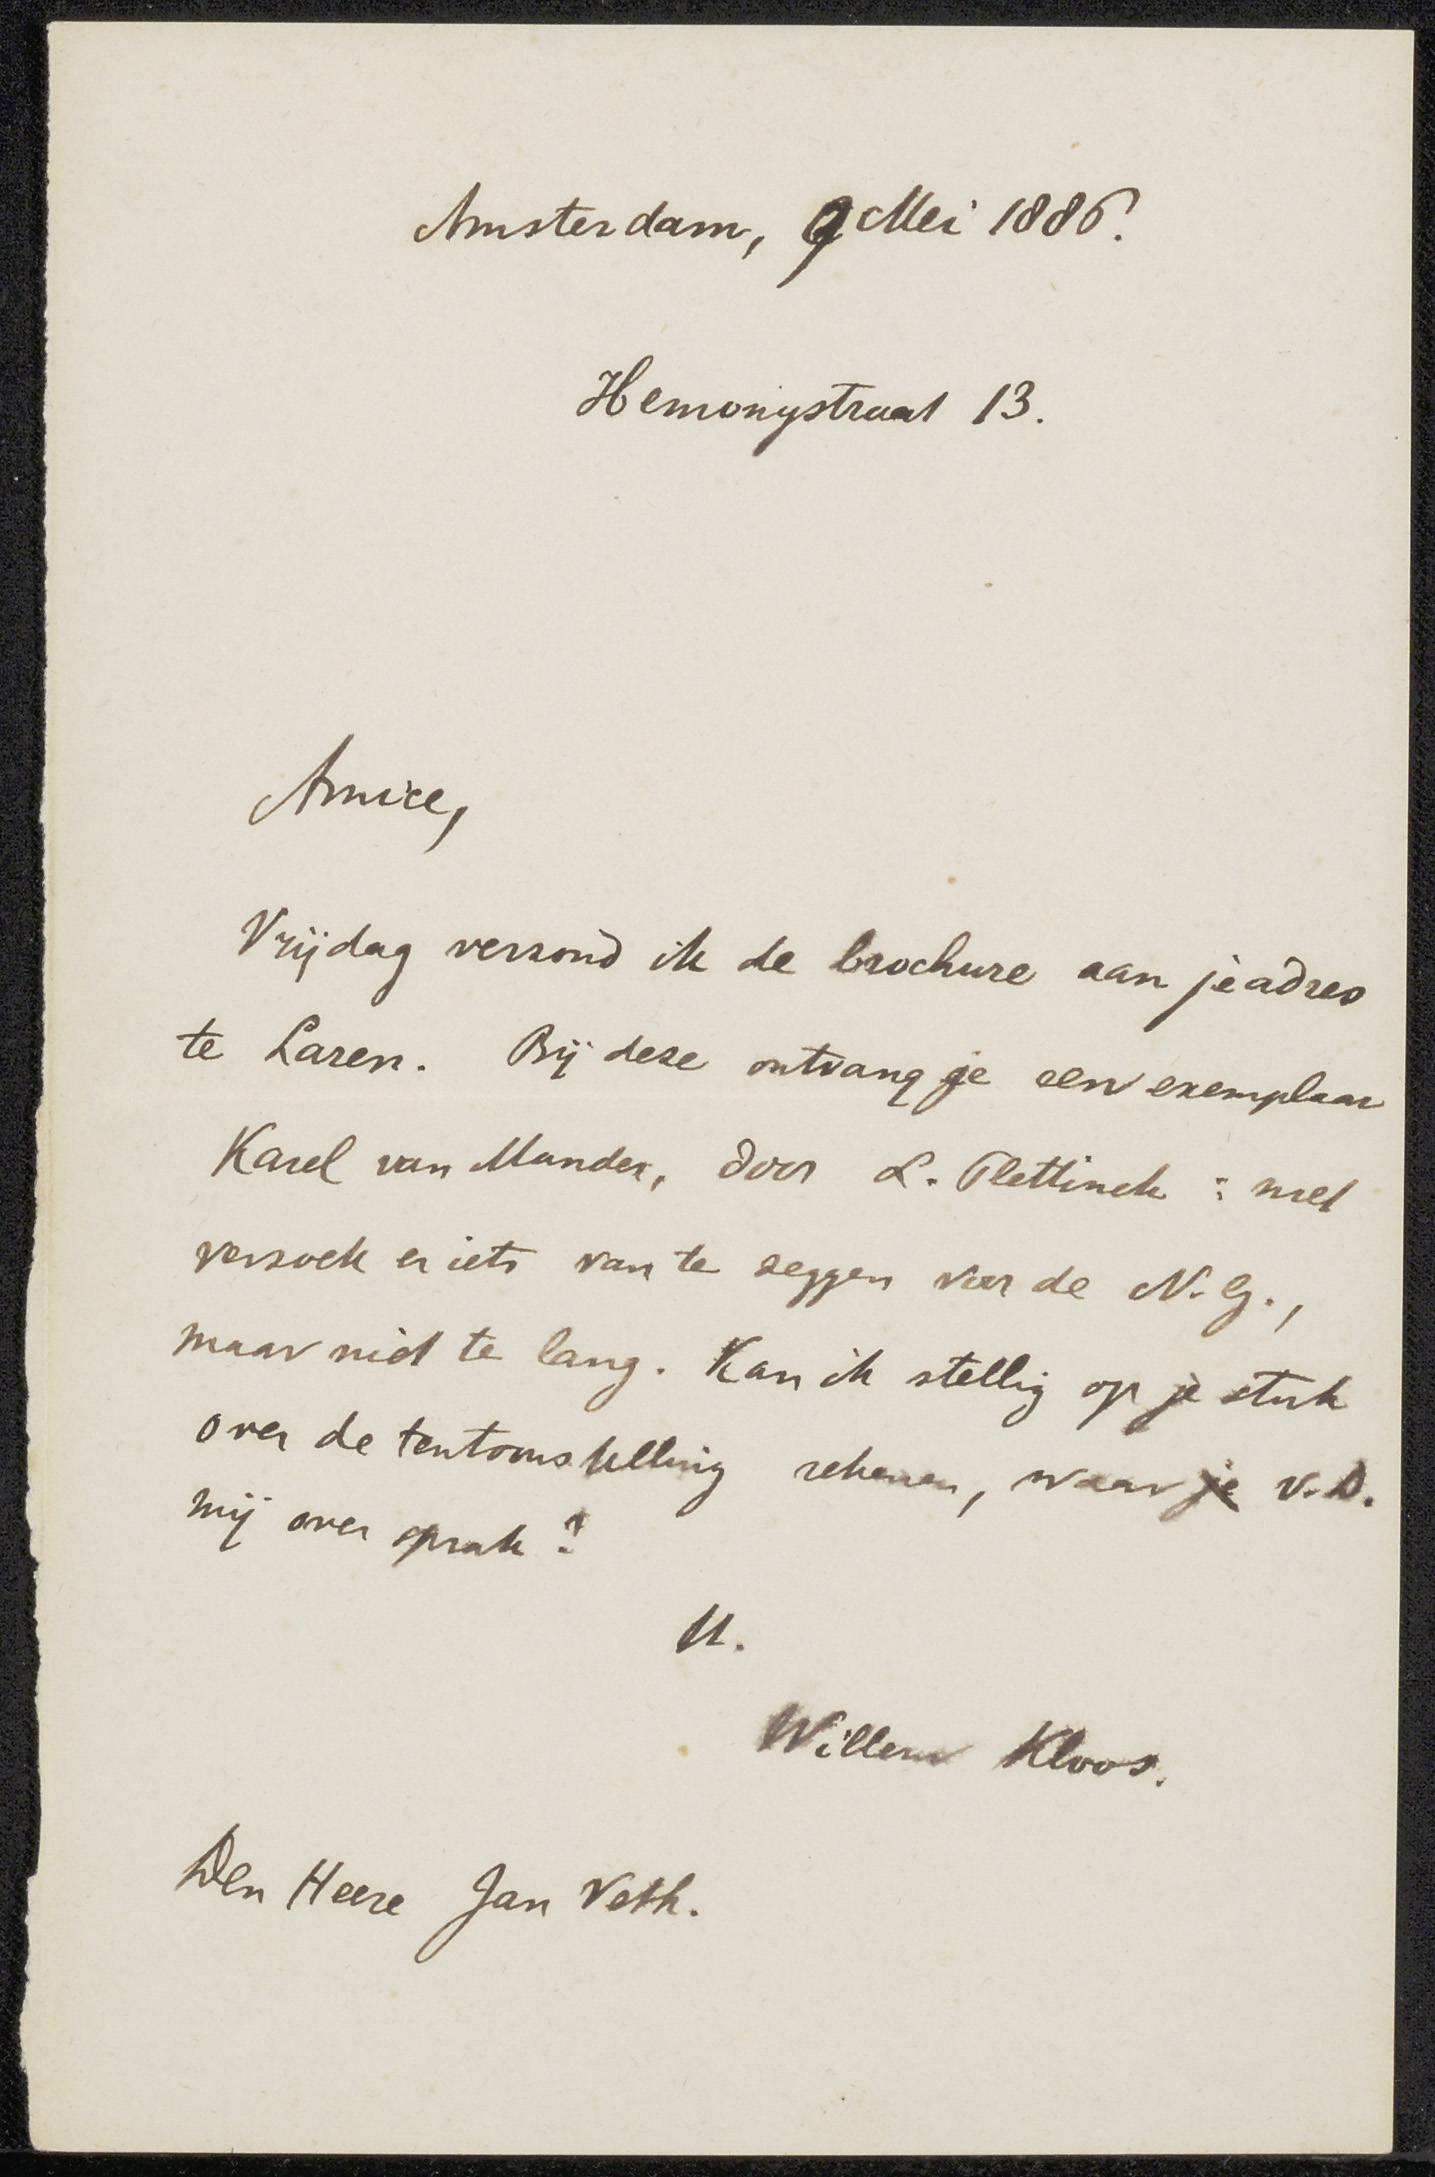 Amsterdam, 9 Mei 1886.
Hemonystraat 13.
Amice,
Vrijdag verzond ik de brochure aan je adres
te Laren. Bij deze ontvang je een exemplaar
Karel van Mander, door L. Plettinck : met
verzoek er iets van te zeggen voor de N.G.,
maar niet te lang. Kan ik stellig op je stuk
over de tentoonstelling rekenen, waar je v.D.
mij over sprak?
tt.
Willem Kloos.
Den Heere Jan Veth.